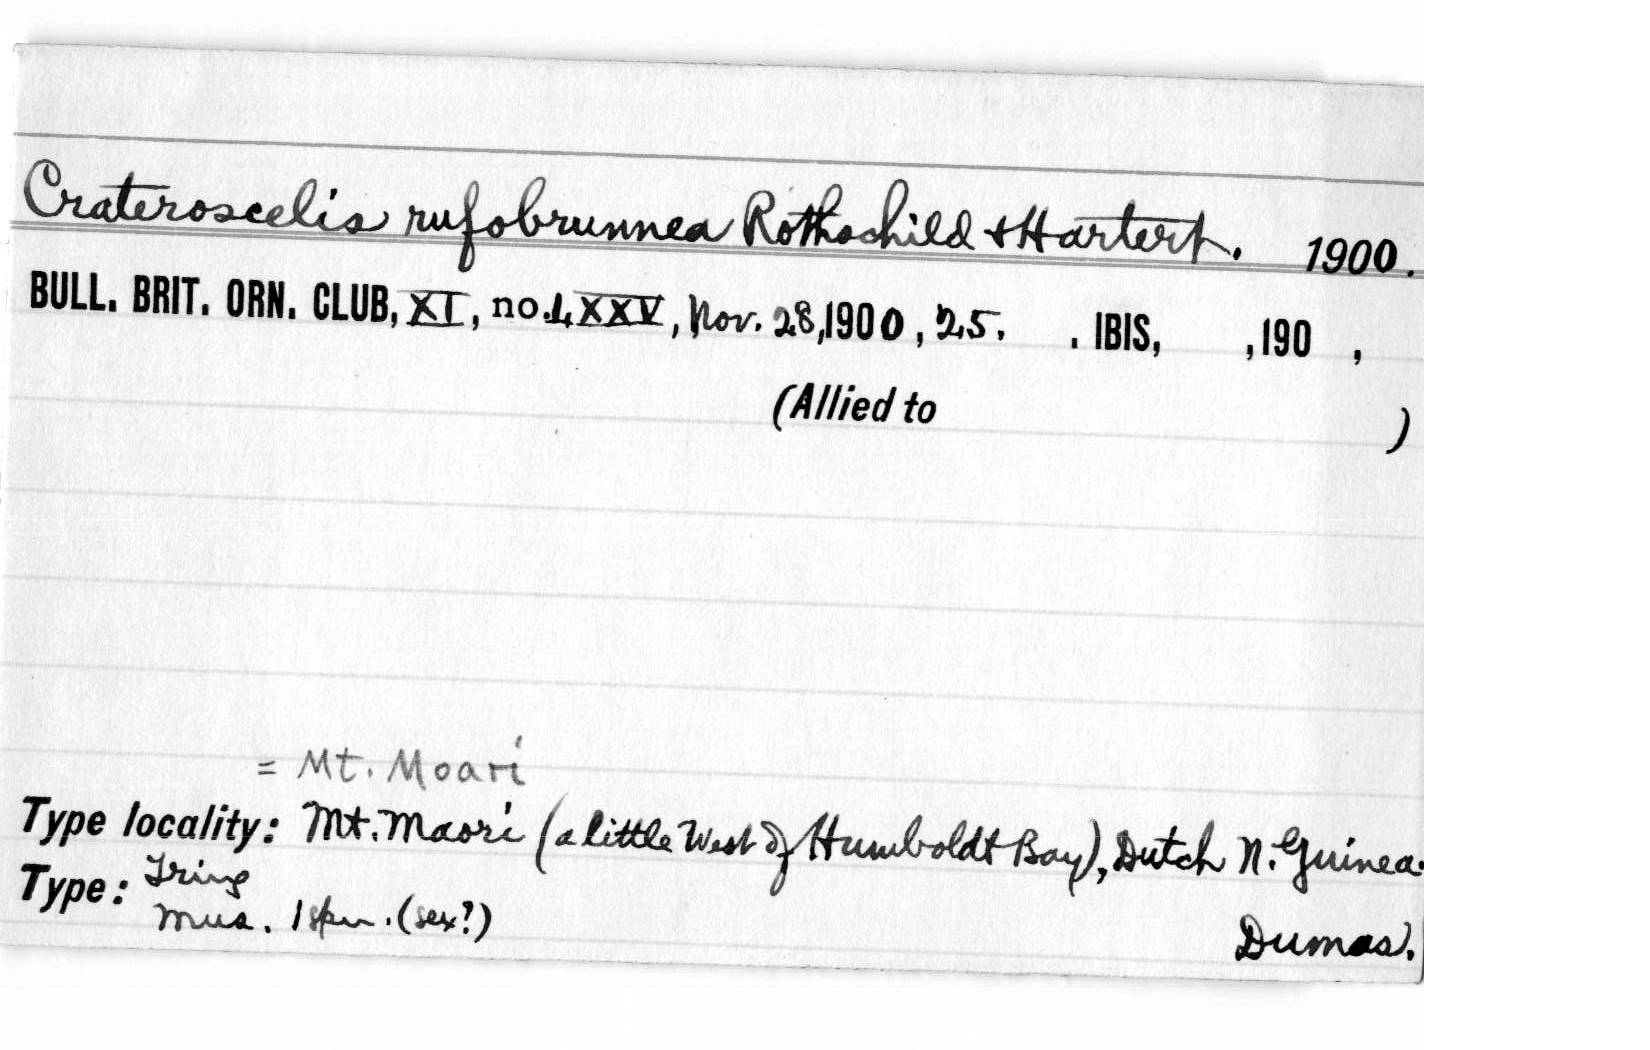 Crateroscelis rufobrunnea Rothschild & Hartert. 1900.
BULL. BRIT. ORN. CLUB, XI, no. LXXV, Nov. 28, 1900, 25. . IBIS, , 190 ,
(Allied to )
= Mt. Moari
Type locality: Mt. Maori (a little West of Humboldt Bay), Dutch N. Guinea.
Type: Tring
Mus. 1 spm. (sex?) Dumas.